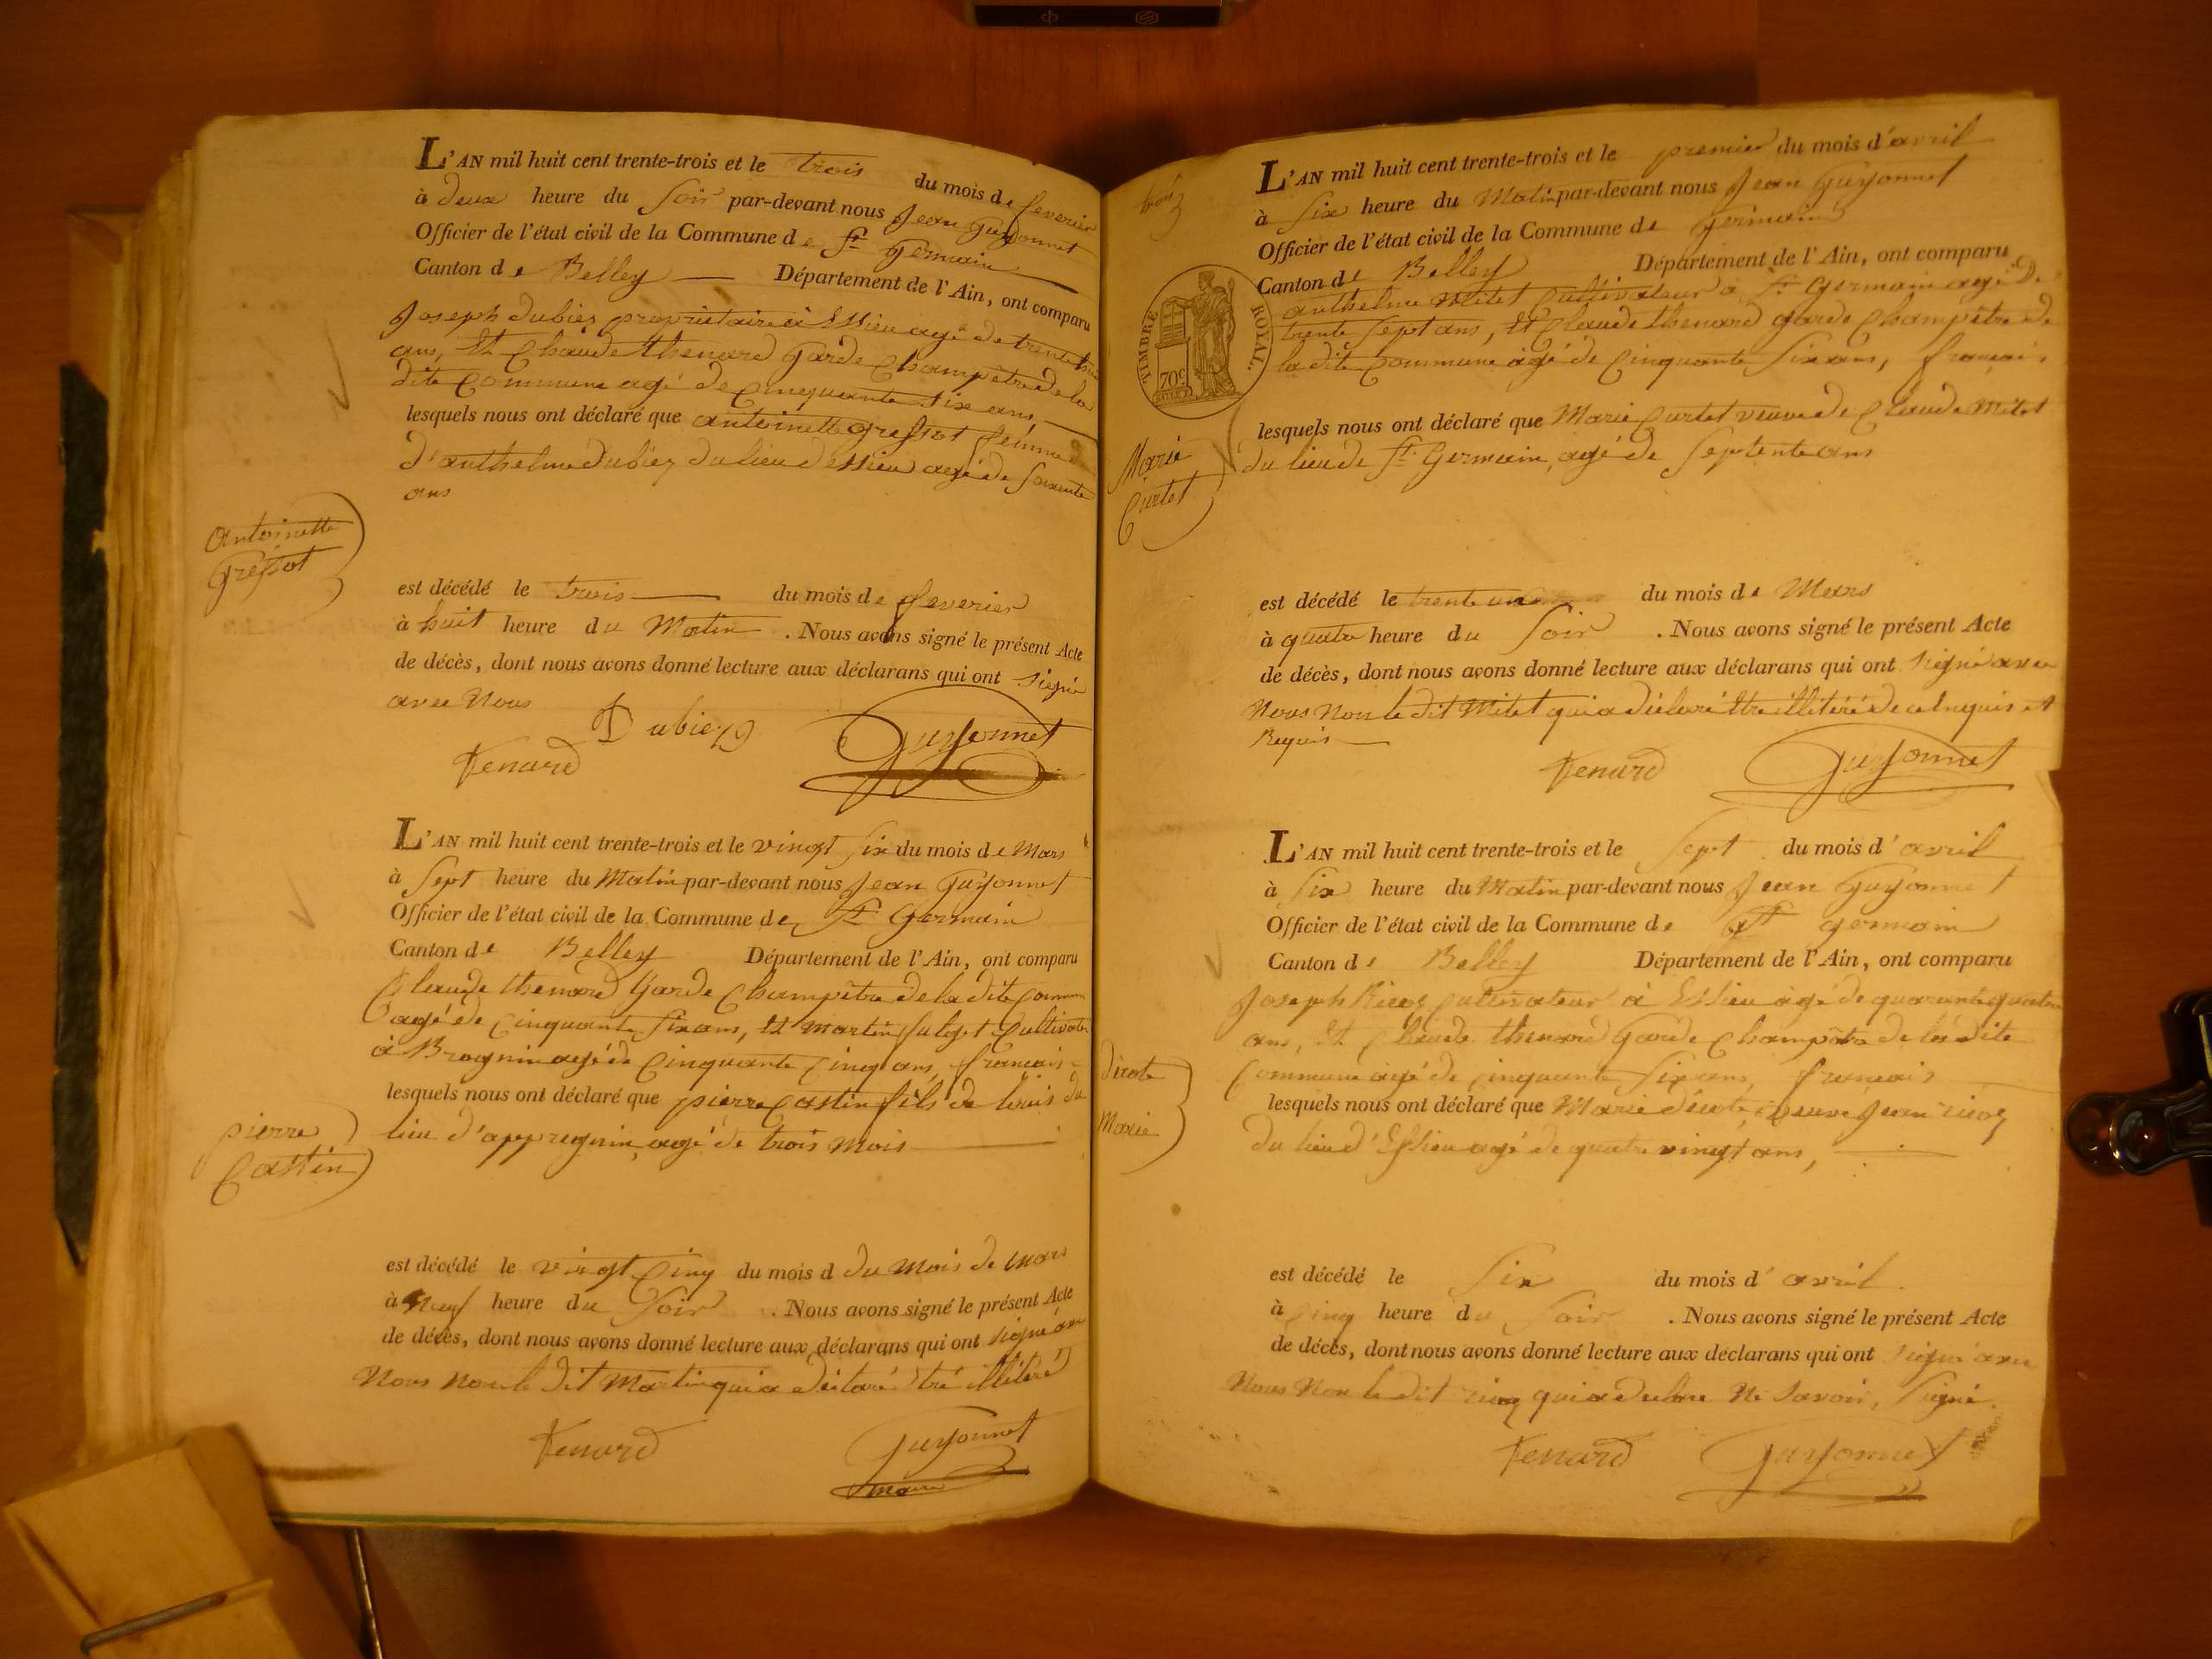 L'AN mil huit cent trente-trois et le trois du mois de feverier
à deux heure du soir par-devant nous Jean Guyonnet
Officier de l'état civil de la Commune de St Germain
Canton de Belley Département de l'Ain, ont comparu
Joseph Dubiez proprietaire à Essieu agé de trente
ans, Et Claude thenard Garde Champêtre de la
dite Commune agé de Cinquante six ans
lesquels nous ont déclaré que antoinette Gressot femme
d'anthelme Dubiez du lieu d'Essieu agé de soixente
ans
Antoinette
Gressot
est décédé le trois du mois de feverier
à huit heure du Matin . Nous avons signé le présent Acte
de décès, dont nous avons donné lecture aux déclarans qui ont signé
avec Nous
Dubiez
Tenard
Guyonnet
L'AN mil huit cent trente-trois et le vingt six du mois de Mars
à sept heure du Matin par-devant nous Jean Guyonnet
Officier de l'état civil de la Commune de St Germain
Canton de Belley Département de l'Ain, ont comparu
Claude thenard Garde Champêtre de la dite Commune
agé de Cinquante six ans, Et Martin Cultivateur
à Brognin agé de Cinquante Cinq ans, francais
lesquels nous ont déclaré que pierre Castin fils de Louis du
lieu d'appregnin, agé de trois mois
pierre
Castin
est décédé le vingt Cinq du mois d du mois de mars
à Neuf heure du soir . Nous avons signé le présent Acte
de décès, dont nous avons donné lecture aux déclarans qui ont signé avec
Nous non le dit Martin qui a déclaré Etré illitéré
Tenard
Guyonnet
maire
trois
3
L'AN mil huit cent trente-trois et le premier du mois d'avril
à six heure du Matin par-devant nous Jean Guyonnet
Officier de l'état civil de la Commune de Germain
Canton de Belley Département de l'Ain, ont comparu
anthelme Mitet Cultivateur à St Germain agé de
trente sept ans, Et Claude thenard garde Champêtre de
la dite Commune agé de Cinquante six ans, francais
TIMBRE ROYAL.
70c
lesquels nous ont déclaré que Marie Curtet veuve de Claude Mitet
du lieu de St Germain, agé de septente ans
Marie
Curtet
est décédé le trente un du mois de Mars
à quatre heure du soir . Nous avons signé le présent Acte
de décès, dont nous avons donné lecture aux déclarans qui ont signé avec
Nous Non le dit Mitet qui a déclaré Etre illiteré de ce Enquis et
Requis
Tenard
Guyonnet
L'AN mil huit cent trente-trois et le sept du mois d'avril
à six heure du Matin par-devant nous Jean Guyonnet
Officier de l'état civil de la Commune de St germain
Canton de Belley Département de l'Ain, ont comparu
Joseph Cultivateur à Essieu agé de quarante quatre
ans, Et Claude thenard Garde Champêtre de la dite
Commune agé de Cinquante six ans, francais
lesquels nous ont déclaré que Marie décote, veuve Jean
du lieu d'Essieu agé de quatre vingt ans,
décote
Marie
est décédé le six du mois d'avril
à Cinq heure du soir . Nous avons signé le présent Acte
de décès, dont nous avons donné lecture aux déclarans qui ont signé avec
Nous Non le dit qui a declaré Ne savoir, signé.
Tenard
Guyonnet